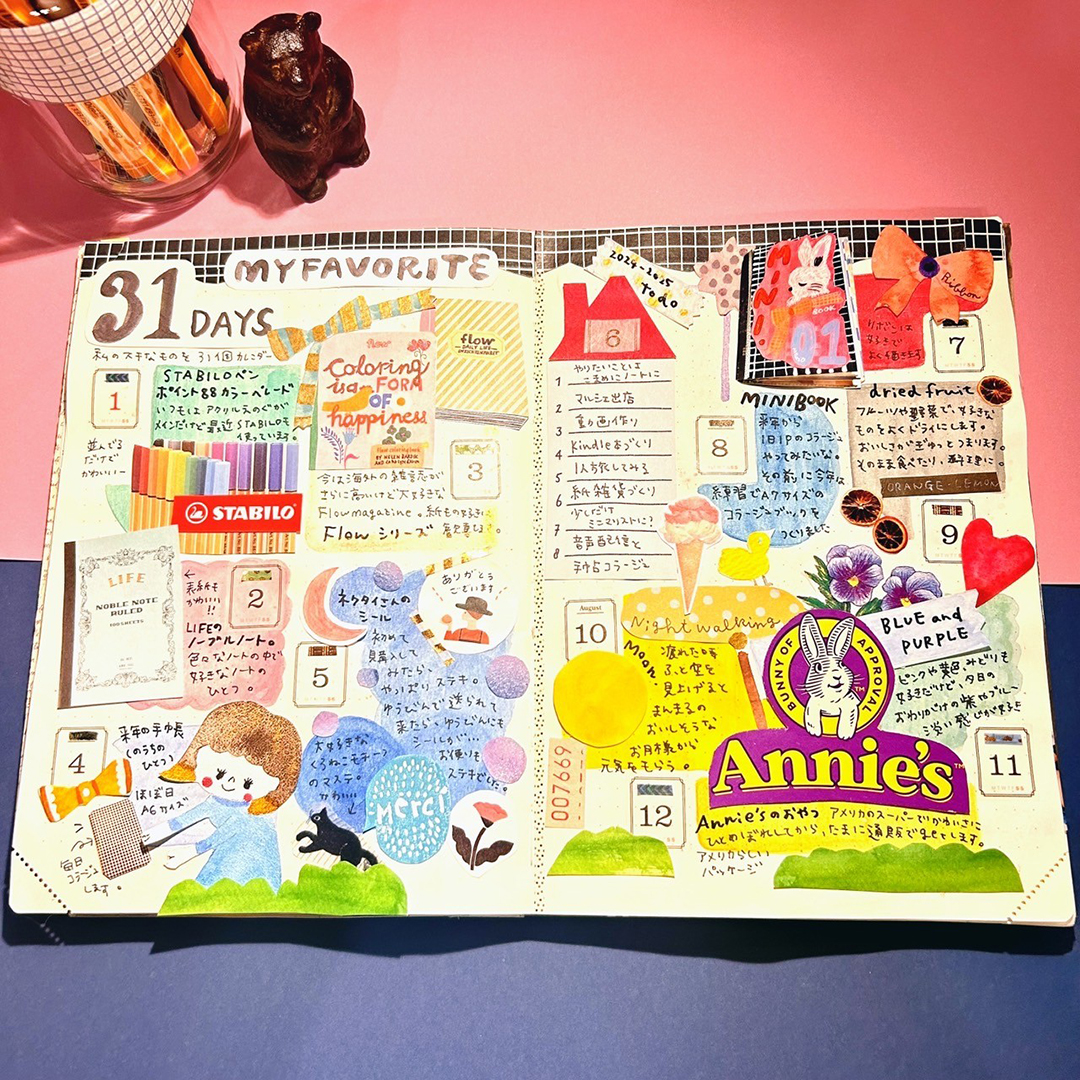 31 DAYS
MY FAVORITE
私の大好きなものを 31個カレンダー
1
STABILOペン
ポイント88カラーパレード
いつもは アクリルえのぐが
メインだけど 最近STABILOも
使っています。
並んでる
だけど
かわいいー
STABILO
flow
Coloring
is a FORM
OF
happiness
3
今は海外の雑貨が
さらに高いけど大好きな
Flowmagazine。紙もの好きに
Flow シリーズ
LIFE
NOBLE NOTE
RULED
100 SHEETS
←
表紙も
かわいい
!!
2
LIFEの
ノーブルノート。
色々なノートの中で
好きなノートの
ひとつ。
5
ネクタイさんの
シール
初めて
購入して
みたら、
やっぱり ステキ。
ゆうびんで送られて
来たら、ゆうびんにも
シールが…
お便りも
ステキでした。
ありがとう
ございます
4
来年の手帳
のうちの
ひとつ
ほぼ日
A6サイズ
毎日
コラージュ
します。
大好きな
くろねこモチーフ
のマステ。
かわいい
merci
2024-2025
to do
6
やりたいことは
こまめにノートに
1
マルシェ出店
2
動画作り
3
Kindle本づくり
4
1人旅してみる
5
紙雑貨づくり
6
少しだけ
ミニマリストに?
7
音声配信と
8
MINI
BOOK
01
MINIBOOK
8
来年から
1日1Pのコラージュ
やってみたいな。
その前に今年は
練習でA7サイズの
コラージュブックを
つくりました
Ribbon
7
リボンは
好きで
よく描きます
dried fruit
フルーツや野菜で、好きな
ものをよくドライにします。
おいしさがぎゅっとつまります。
そのまま食べたり、料理に。
ORANGE-LEMON
9
August
10
Night walking
Moon
疲れた時
ふと空を
見上げると
まんまるの
おいしそうな
お月様から
元気をもらう。
BLUE and
PURPLE
ピンクや黄色、みどりも
好きだけど、夕日の
おわりかけの紫やブルー
淡い感じが好き
11
BUNNY OF APPROVAL
Annie's
007669
12
Annie'sのおやつ アメリカのスーパーでかわいさに
ひとめぼれしてから、たまに通販でgetします。
アメリカらしい
パッケージ